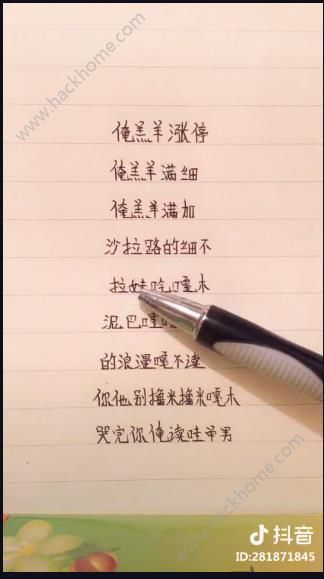 俺羔羊涨停
俺羔羊满细
俺羔羊满加
沙拉路的细不
拉娃吃嘎木
泥巴嘎
的浪漫嘎不读
你他别撸米撸米嘎木
哭完你俺读哇帝男
抖音
ID:281871845
www.hackhome.com
www.hackhome.com